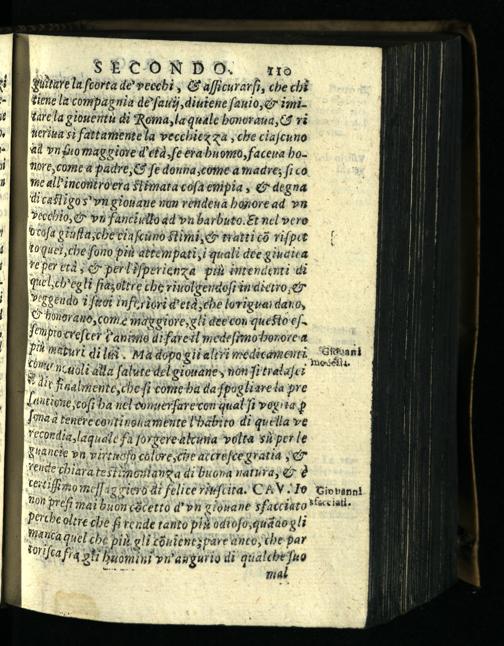 SECONDO. 110
guitare la scorta de' vecchi, & assicurarsi, che chi
tiene la compagnia de' sauij, diuiene sauio, & imi-
tare la giouentù di Roma, la quale honoraua, & ri
ueriua sì fattamente la vecchiezza, che ciascuno
ad vn suo maggiore d'età, se era huomo, faceua ho-
nore, come a padre, & se donna, come a madre; sì co
me all'incontro era stimata cosa empia, & degna
di castigo s'vn giouane non rendeua honore ad vn
vecchio, & vn fanciullo ad vn barbuto. Et nel vero
è cosa giusta, che ciascuno stimi, & tratti cō rispet
to quei, che sono più attempati, i quali dee giudica
re per età, & per isperienza più intendenti di
quel, ch'egli sia, oltre che riuolgendosi in dietro, &
veggendo i suoi inferiori d'età, che lo riguardano,
& honorano, come maggiore, gli dee con questo es-
sempio crescer l'animo di fare il medesimo honore a
più maturi di lui. Ma dopo gli altri medicamenti
Giouani
modesti.
come nuoli alla salute del giouane, non si tralasci
di dir finalmente, che sì come ha da spogliare la pre
suntione, così ha nel conuersare con qual si voglia ꝑ
sona à tenere continouamente l'habito di quella ve
recondia, laquale fa sorgere alcuna volta sù per le
guancie vn virtuoso colore, che accresce gratia, &
rende chiara testimonianza di buona natura, & è
certissimo messaggiero di felice riuscita. CAV. Io
Giouanni
sfacciati.
non presi mai buon cōcetto d'vn giouane sfacciato
perche oltre che si rende tanto più odioso, quāto gli
manca quel che più gli cōuiene; pare anco, che par
torisca fra gli huomini vn'augurio di qualche suo
mal